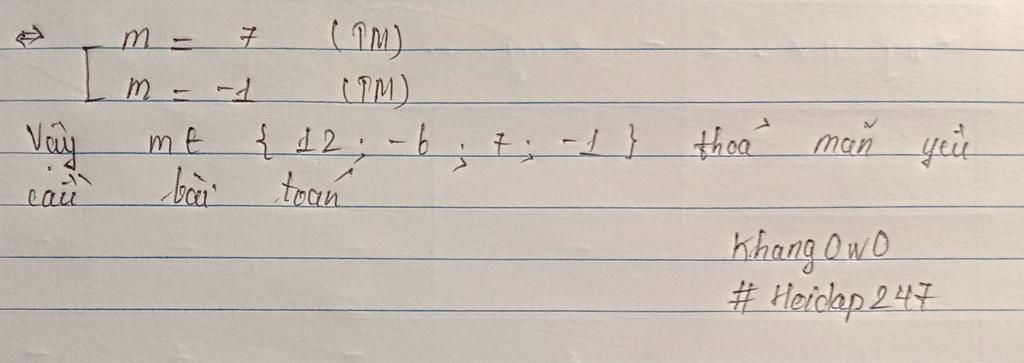 ⇔ [ m = 7 (TM)
m = -1 (TM)
Vậy m ∈ { 12 ; -6 ; 7 ; -1 } thoả mãn yêu
cầu bài toán
KhangOwO
# Hoidap247